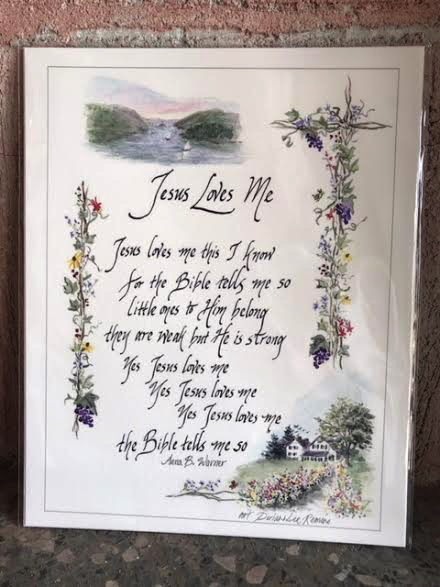 Jesus Loves Me
Jesus loves me this I know
for the Bible tells me so
little ones to Him belong
they are weak but He is strong
Yes Jesus loves me
Yes Jesus loves me
Yes Jesus loves me
the Bible tells me so
Anna B. Warner
art